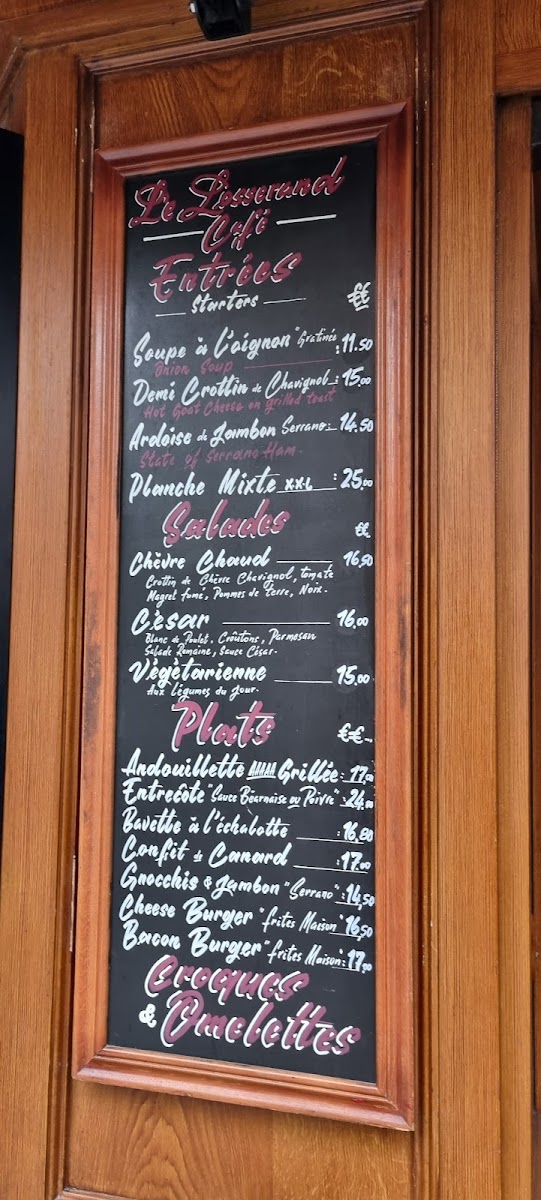 Le Losserand
Café
Entrées
Starters €€
Soupe à l'oignon "Gratinée : 11.50
Onion Soup
Demi Crottin de Chavignol : 15.00
Hot Goat Cheese on grilled toast
Ardoise de Jambon Serrano : 14.50
State of Serrano Ham
Planche Mixte XXL : 25.00
Salades €€
Chèvre Chaud 16,50
Crottin de Chèvre Chavignol, tomate
Magret fumé, Pommes de terre, Noix.
César 16.00
Blanc de Poulet, Croûtons, Parmesan
Salade Romaine, Sauce César.
Végétarienne 15.00
Aux légumes du jour.
Plats €€
Andouillette AAAAA Grillée : 17.00
Entrecôte "Sauce Béarnaise ou Poivre" : 24.00
Bavette à l'échalotte : 16,80
Confit de Canard : 17.00
Gnocchis & Jambon "Serrano" : 14,50
Cheese Burger "frites Maison" 16,50
Bacon Burger "frites Maison" : 17,90
Croques
& Omelettes